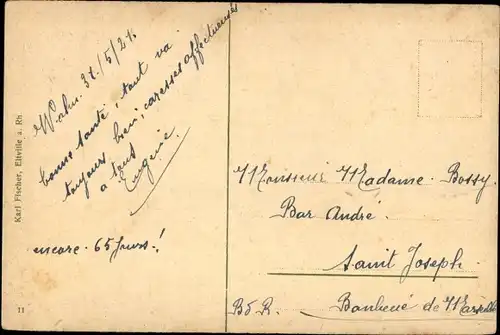 31/5/21.
bonne santé, tout va
toujours bien, caresses affectueuses
a tous
Eugenie.
encore 65 jours!
Karl Fischer, Eltville a. Rh
11
Monsieur Madame Bossy
Bar André.
Saint Joseph
Bd R. Banlieue de Marseille